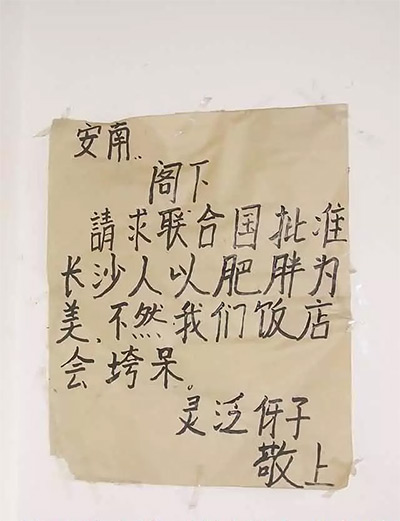 安南:
阁下
請求联合国批准
长沙人以肥胖为
美,不然我们饭店
会垮呆。
灵泛伢子
敬上